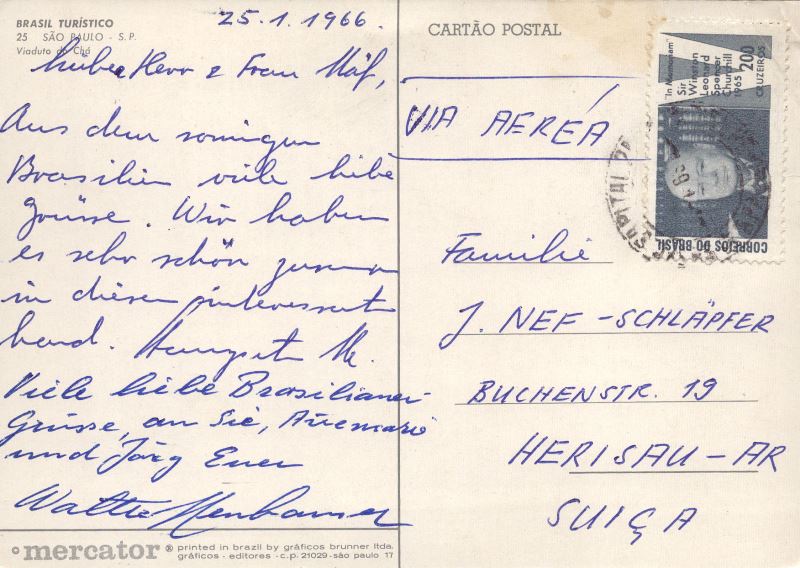 BRASIL TURÍSTICO
25 SÃO PAULO - S.P.
Viaduto do Chá
25.1.1966.
Liebe Herr & Frau Näf,
Aus dem sonnigen
Brasilien viele liebe
Grüsse. Wir haben
es sehr schön zusamm
in diesem interessant
Land.
Viele liebe Brasilianer
Grüsse, an Sie, Annemarie
und Jörg Euer
Walter
mercator ® printed in brazil by gráficos brunner ltda.
gráficos - editores - c.p. 21029 - são paulo 17
CARTÃO POSTAL
VIA AEREÁ
"In Memoriam"
Sir
Winston
Leonard
Spencer
Churchill
1965
200
CRUZEIROS
CORREIOS DO BRASIL
Familie
J. NEF-SCHLÄPFER
BUCHENSTR. 19
HERISAU-AR
SUIÇA